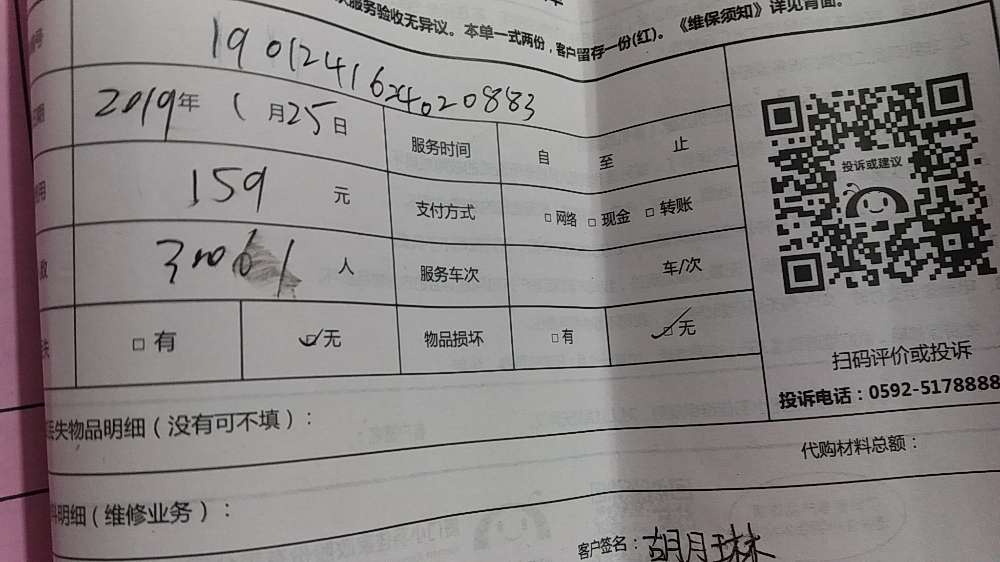 服务验收无异议。本单一式两份，客户留存一份(红)。《维保须知》详见背面。
号 1901241624020883
2019年1月25日 服务时间 自 至 止
投诉或建议
用 159 元 支付方式 □网络 □现金 □转账
数 人 服务车次 车/次
失 □有 ☑无 物品损坏 □有 ☑无
扫码评价或投诉
投诉电话：0592-5178888
丢失物品明细（没有可不填）：
代购材料总额：
明细（维修业务）：
客户签名：胡月琳